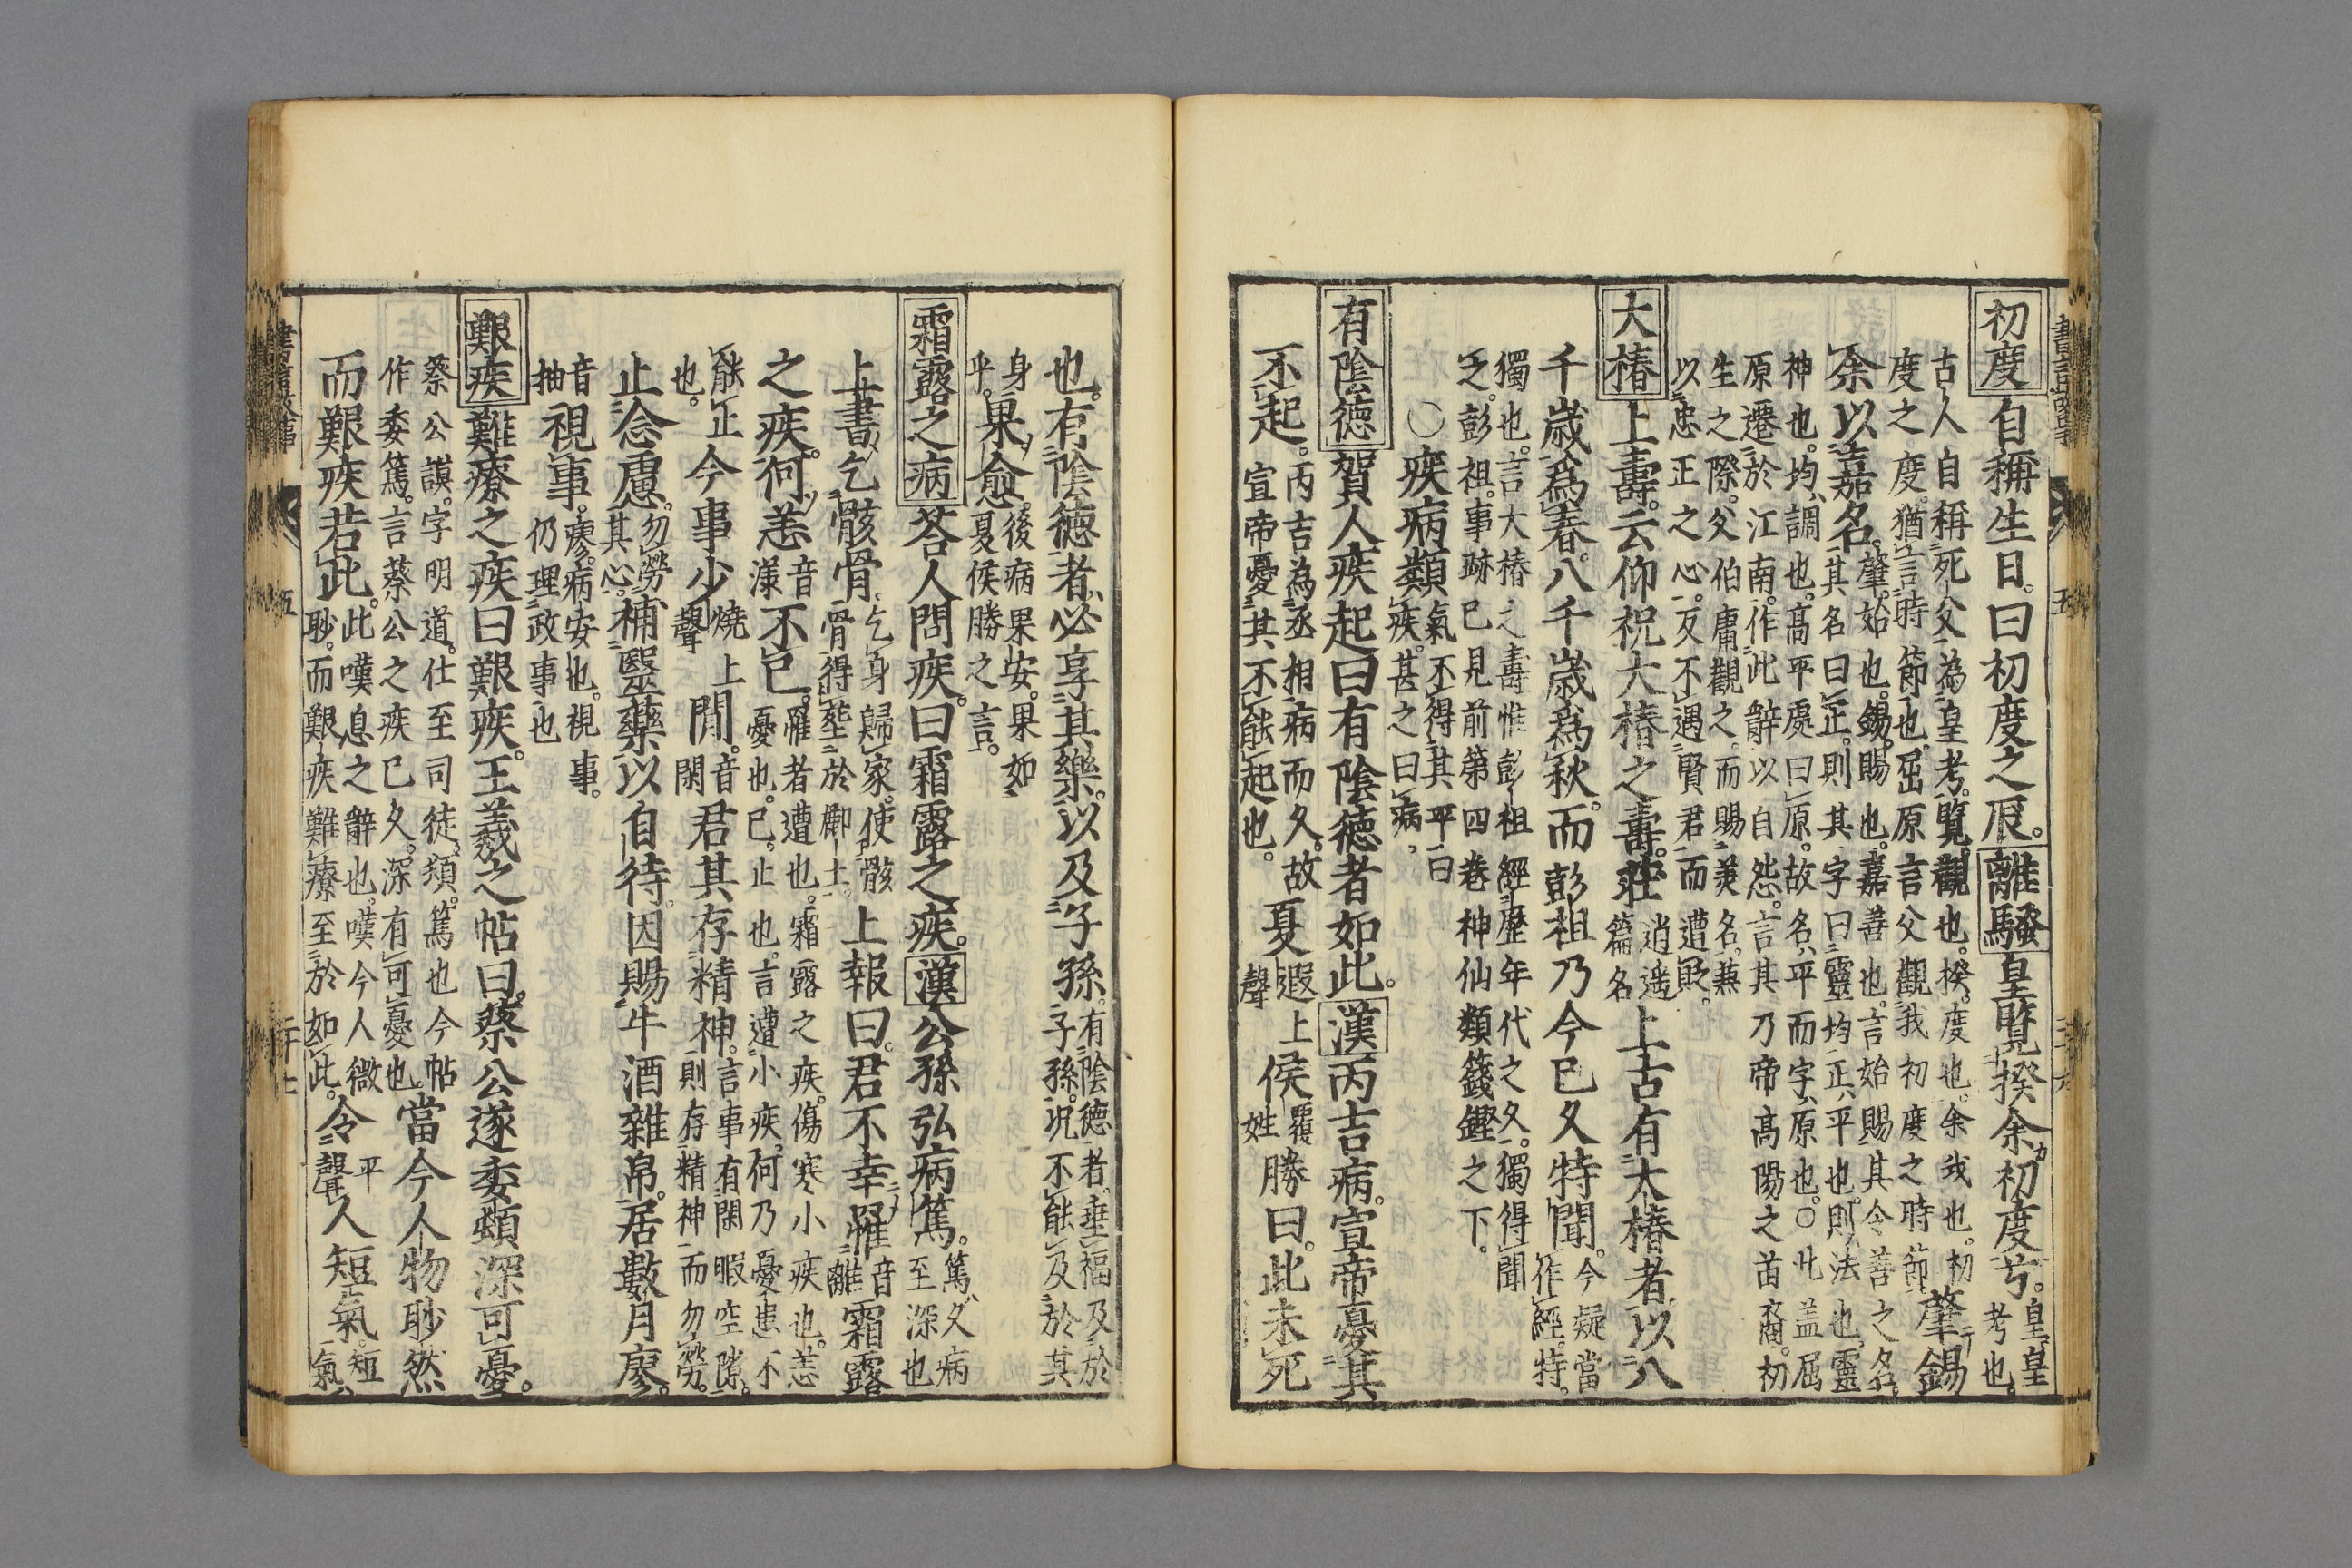 初度自稱生日曰初度之辰離騷皇覽揆余初度兮皇皇考也
古人自稱死父為皇考覽觀也揆度也余我也初
度之度猶言時節也屈原言父觀我初度之時節肇錫
余以嘉名肇始也錫賜也嘉善也言始賜其令善之名
其名曰正則其字曰靈均正平也則法也靈
神也均調也高平處曰原故名平而字原也〇此盖屈
原遷於江南作此辭以自怨言其乃帝高陽之苗裔初
生之際父伯庸觀之而賜美名兼
以忠正之心反不遇賢君而遭貶
大椿上壽云仰祝大椿之壽莊逍遥篇名上古有大椿者以八
千歲為春八千歲為秋而彭祖乃今已久特聞今疑當作經特
獨也言大椿之壽惟彭祖經歷年代之久獨得聞
之彭祖事跡已見前第四卷神仙類籛鏗之下
〇疾病類氣不得其平曰疾甚之曰病
有陰德賀人疾起曰有陰德者如此漢丙吉病宣帝憂其
不起丙吉為丞相病而久故宣帝憂其不能起也夏遐上聲侯覆姓勝曰此未死
也有陰德者必享其樂以及子孫有陰德者垂福及於子孫况不能及於其
身乎果愈後病果安果如夏侯勝之言
霜露之病答人問疾曰霜露之疾漢公孫弘病篤篤久病至深也
上書乞骸骨乞身歸家使骸骨得葬於鄉土上報曰君不幸罹音離霜露
之疾何恙音漾不已罹者遭也霜露之疾傷寒小疾也恙憂也已止也言遭小疾何乃憂患不
能止也今事少燒上聲閒音閑君其存精神言事有閑暇空隙則存精神而勿勞
止念慮勿勞其心補醫藥以自待因賜牛酒雜帛居數月廖
音抽視事廖病安也視事仍理政事也
艱疾難療之疾曰艱疾王羲之帖曰蔡公遂委頓深可憂
蔡公謨字明道仕至司徒須篤也今帖作委篤言蔡公之疾已久深有可憂也當今人物眇然
而艱疾若此此嘆息之辭也嘆今人微眇而艱疾難療至於如此令平聲人短氣短氣